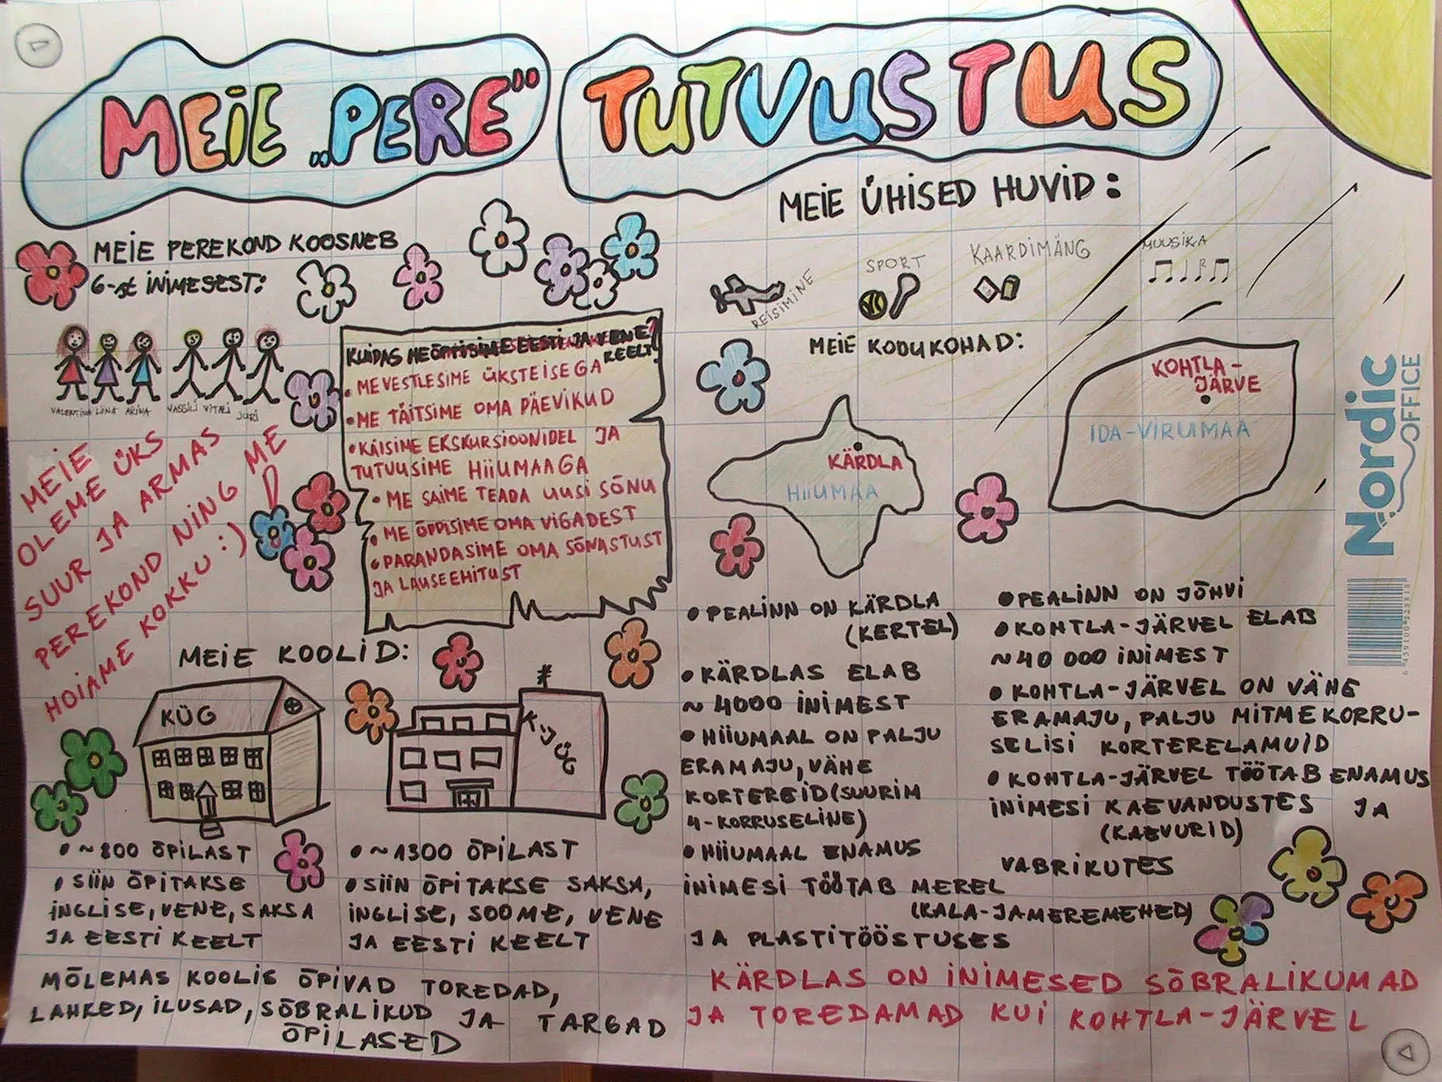 MEIE „PERE" TUTVUSTUS
MEIE PEREKOND KOOSNEB
6-st INIMESEST:
VALENTINA LIINA ARINA VASSILI VITALI JURI
MEIE
OLEME ÜKS
SUUR JA ARMAS
PEREKOND NING ME
HOIAME KOKKU :)
KUIDAS ME ÕPPISIME EESTI JA VENE
KEELT?
• ME VESTLESIME ÜKSTEISEGA
• ME TÄITSIME OMA PÄEVIKUD
• KÄISIME EKSKURSIOONIDEL JA
TUTVUSIME HIIUMAAGA
• ME SAIME TEADA UUSI SÕNU
• ME ÕPPISIME OMA VIGADEST
• PARANDASIME OMA SÕNASTUST
JA LAUSEEHITUST
MEIE KOOLID:
KÜG
KJÜG
• ~800 ÕPILAST
• SIIN ÕPITAKSE
INGLISE, VENE, SAKSA
JA EESTI KEELT
• ~1300 ÕPILAST
• SIIN ÕPITAKSE SAKSA,
INGLISE, SOOME, VENE
JA EESTI KEELT
MÕLEMAS KOOLIS ÕPIVAD TOREDAD,
LAHKED, ILUSAD, SÕBRALIKUD JA TARGAD
ÕPILASED
MEIE ÜHISED HUVID:
REISIMINE
SPORT
KAARDIMÄNG
MUUSIKA
MEIE KODUKOHAD:
KÄRDLA
HIIUMAA
KOHTLA-
JÄRVE
IDA-VIRUMAA
• PEALINN ON KÄRDLA
(KERTEL)
• KÄRDLAS ELAB
~ 4000 INIMEST
• HIIUMAAL ON PALJU
ERAMAJU, VÄHE
KORTEREID (SUURIM
4-KORRUSELINE)
• HIIUMAAL ENAMUS
INIMESI TÖÖTAB MEREL
(KALA-JAMEREMEHED)
JA PLASTITÖÖSTUSES
• PEALINN ON JÕHVI
• KOHTLA-JÄRVEL ELAB
~40 000 INIMEST
• KOHTLA-JÄRVEL ON VÄHE
ERAMAJU, PALJU MITMEKORRU-
SELISI KORTERELAMUID
• KOHTLA-JÄRVEL TÖÖTAB ENAMUS
INIMESI KAEVANDUSTES JA
(KAEVURID)
VABRIKUTES
KÄRDLAS ON INIMESED SÕBRALIKUMAD
JA TOREDAMAD KUI KOHTLA-JÄRVEL
Nordic
OFFICE